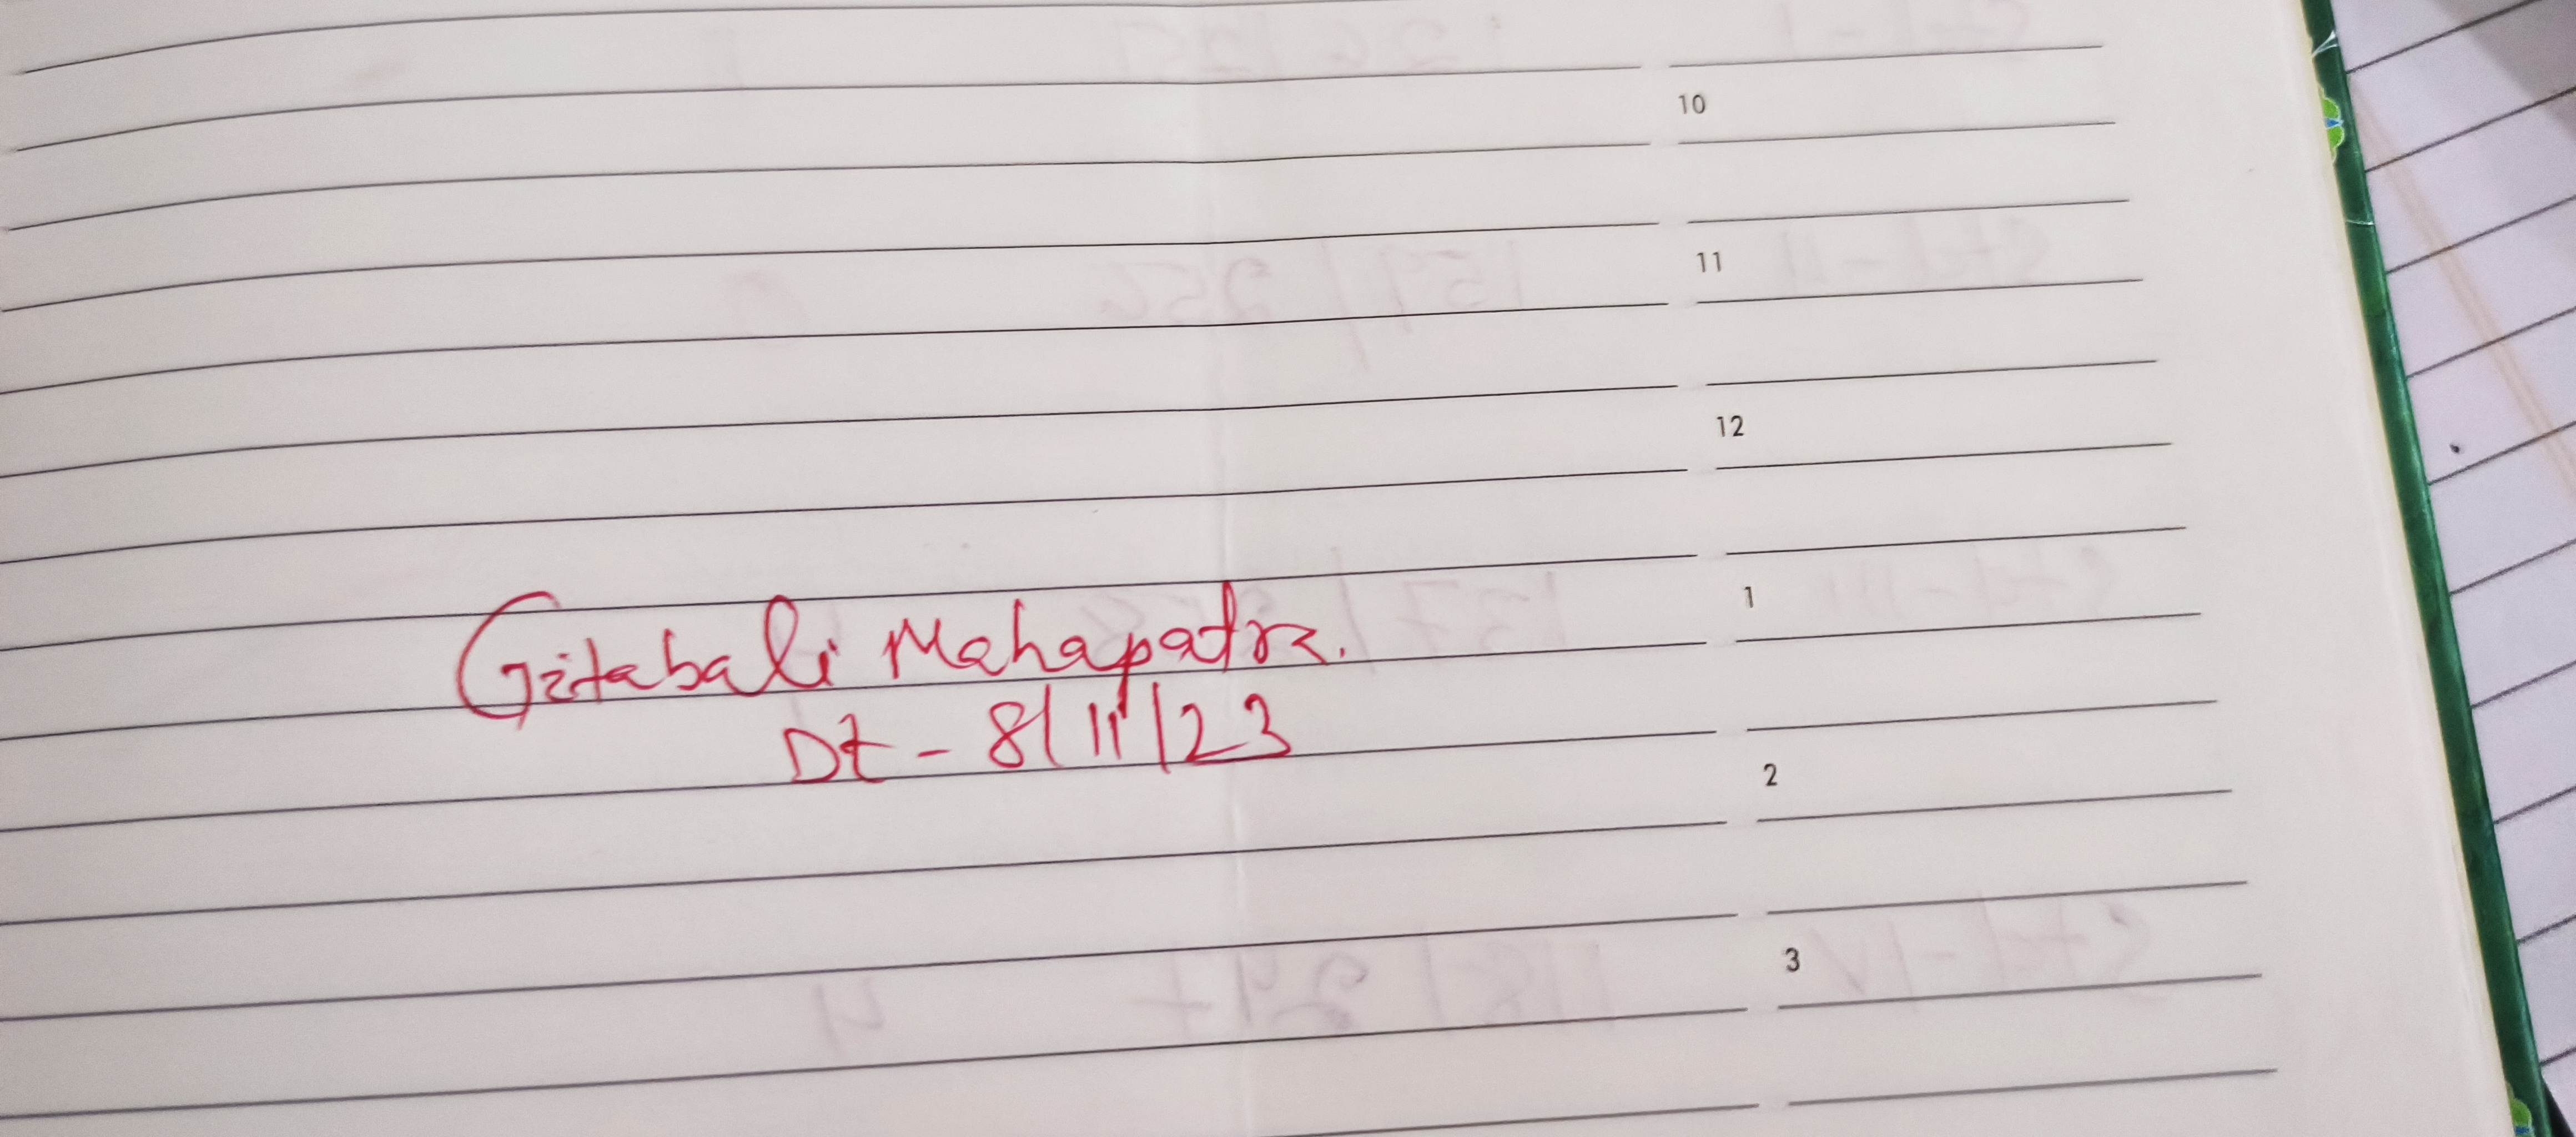 10
11
12
Gitabali Mahapatra.
1
Dt - 8/11/23
2
3